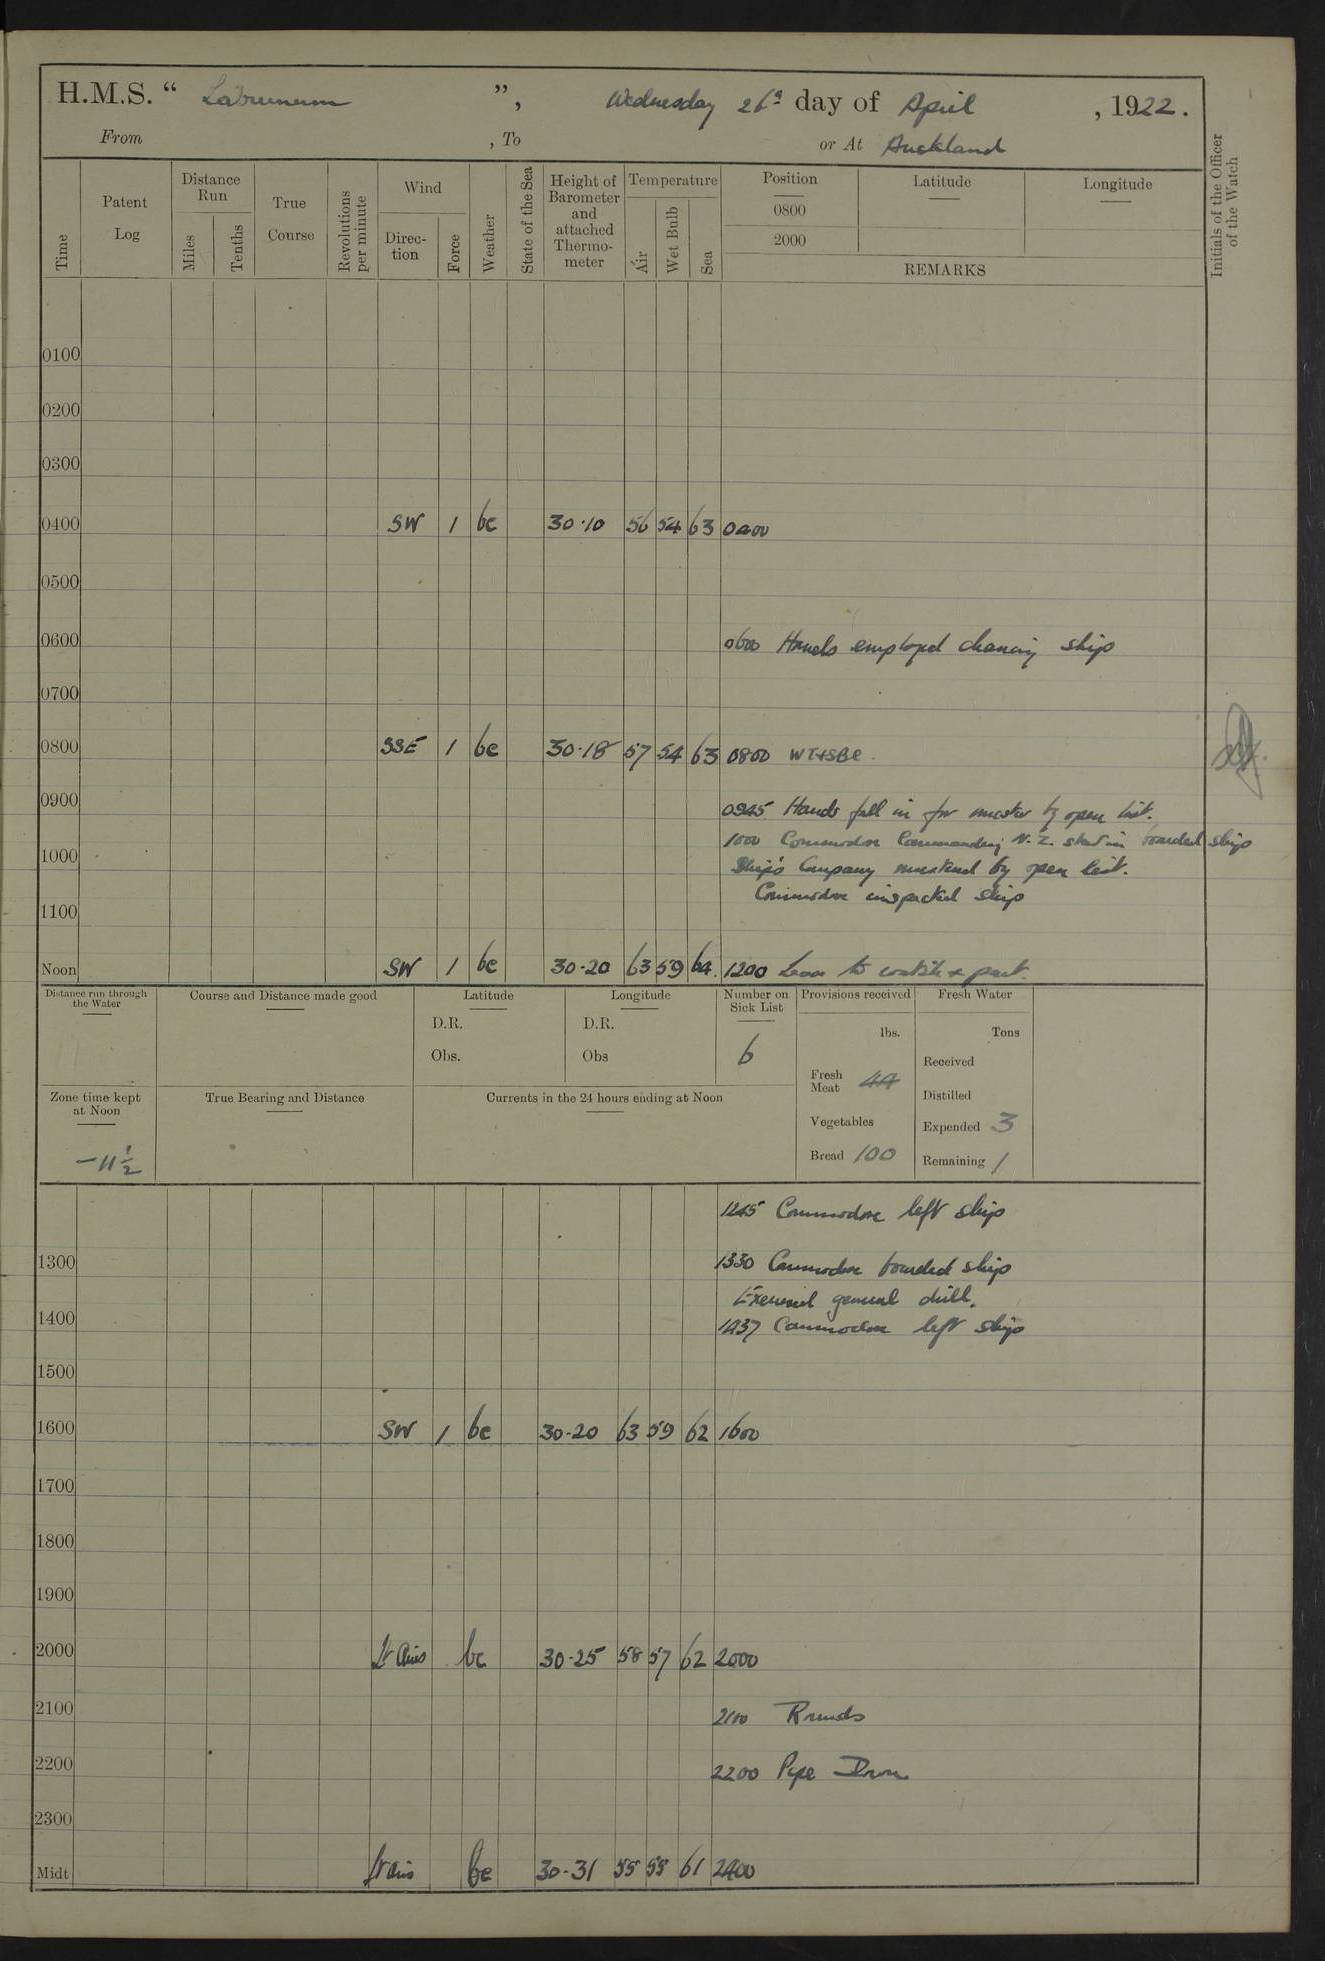 H.M.S. “ Laburnum ”, Wednesday 26th day of April, 1922.
From , To or At Auckland
Time Patent Log Distance Run Miles Tenths True Course Revolutions per minute Wind Direc-tion Force Weather State of the Sea Height of Barometer and attached Thermo-meter Temperature Air Wet Bulb Sea Position 0800 2000 Latitude Longitude REMARKS Initials of the Officer of the Watch
0100
0200
0300
0400 SW 1 bc 30·10 56 54 63 0400
0500
0600 0600 Hands employed cleaning ship
0700
0800 SSE 1 bc 30·18 57 54 63 0800 WT+SBE.
0900 0945 Hands fell in for muster by open list.
1000 Commodore Commanding N.Z. station boarded ship
1000 Ship's Company mustered by open list.
Commodore inspected ship
1100
Noon SW 1 bc 30·20 63 59 64. 1200 Leave to watch & part.
Distance run through the Water Course and Distance made good Latitude Longitude Number on Sick List Provisions received Fresh Water
D.R. D.R. lbs. Tons
Obs. Obs 6 Received
Fresh Meat 44 Distilled
Zone time kept at Noon True Bearing and Distance Currents in the 24 hours ending at Noon
Vegetables Expended 3
-11½ Bread 100 Remaining 1
1245 Commodore left ship
1300 1330 Commodore boarded ship
Exercised general drill.
1400 1437 Commodore left ship
1500
1600 SW 1 bc 30·20 63 59 62 1600
1700
1800
1900
2000 Lt Airs bc 30·25 58 57 62 2000
2100 2100 Rounds
2200 2200 Pipe Down
2300
Midt Lt airs bc 30·31 55 55 61 2400